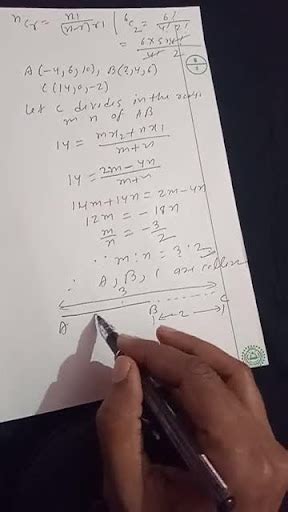 nCr = n! / (n-r)! r! | 6C2 = 6! / 4! 2!
= 6×5×4! / 4! 2
A(-4,6,10), B(2,4,6)
C(14,0,-2)
Let C divides in the ratio
m n of AB
14 = mx2+nx1 / m+n
14 = 2m-4n / m+n
14m+14n = 2m-4n
12m = -18n
m/n = -3/2
∴ m:n = 3:2
∴ A, B, C are
3
A B C
2